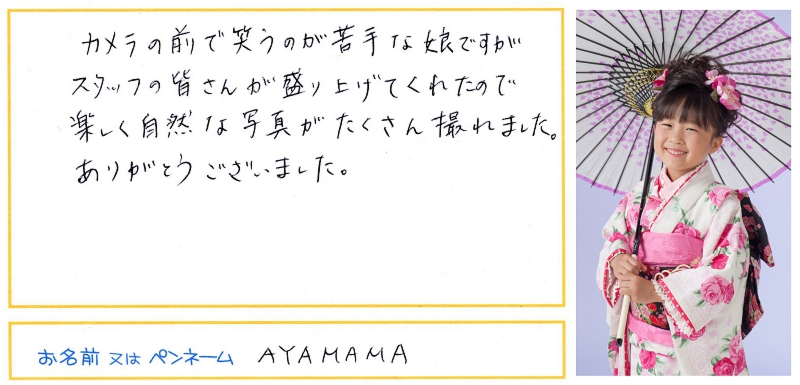 カメラの前で笑うのが苦手な娘ですが
スタッフの皆さんが盛り上げてくれたので
楽しく自然な写真がたくさん撮れました。
ありがとうございました。
お名前 又は ペンネーム AYAMAMA